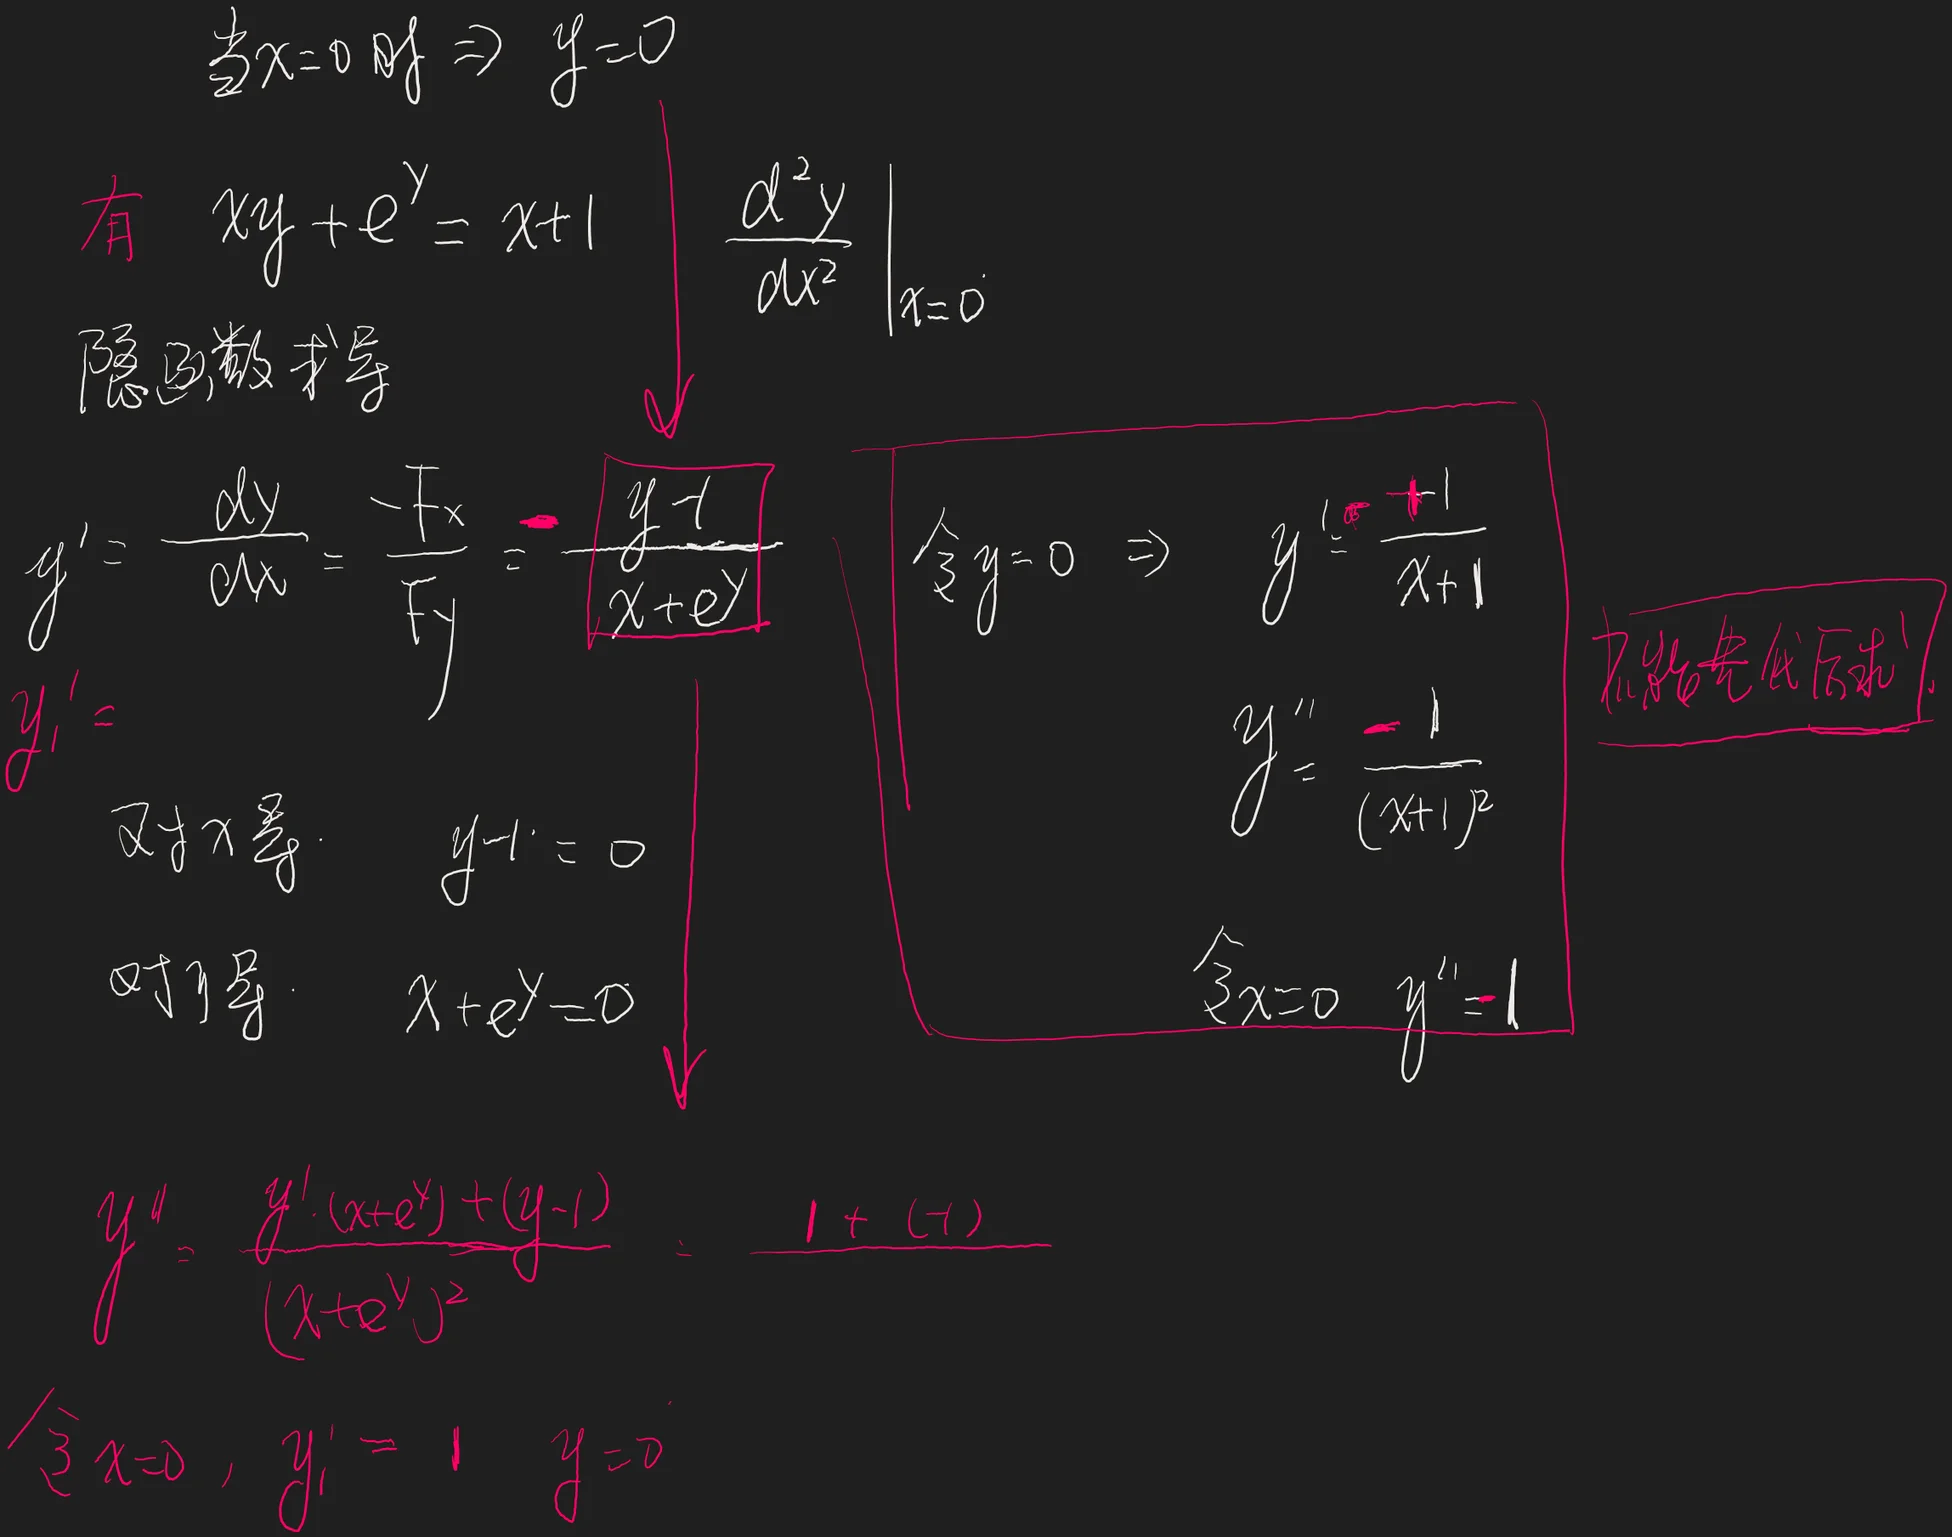 当x=0时 ⇒ y=0
有 xy+e^y = x+1
d²y/dx² |x=0
隐函数求导
y' = dy/dx = -Fx/Fy = - (y-1)/(x+e^y)
y₁' =
对x导. y-1 = 0
对y导. x+e^y=0
令y=0 ⇒ y' = 1/(x+1)
y'' = -1/((x+1)²)
令x=0 y''=-1
不能先代后求.
y'' = (y'·(x+e^y)+(y-1))/((x+e^y)²) = 1+(-1)
令x=0, y₁' = 1 y=0